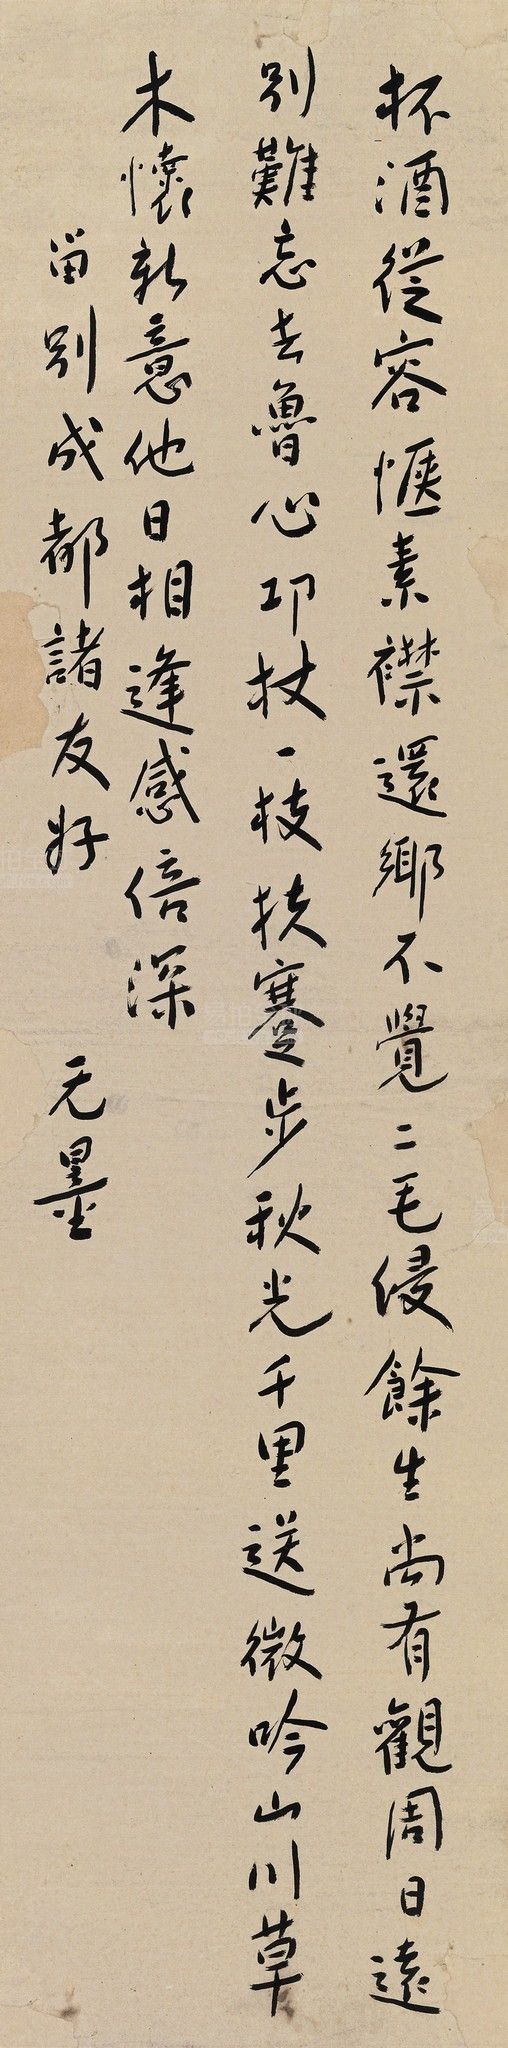 杯酒從容愜素襟還鄉不覺二毛侵餘生尚有觀周日遠
別難忘去魯心邛杖一枝扶蹇步秋光千里送微吟山川草
木懷新意他日相逢感倍深
留別成都諸友好
无墨